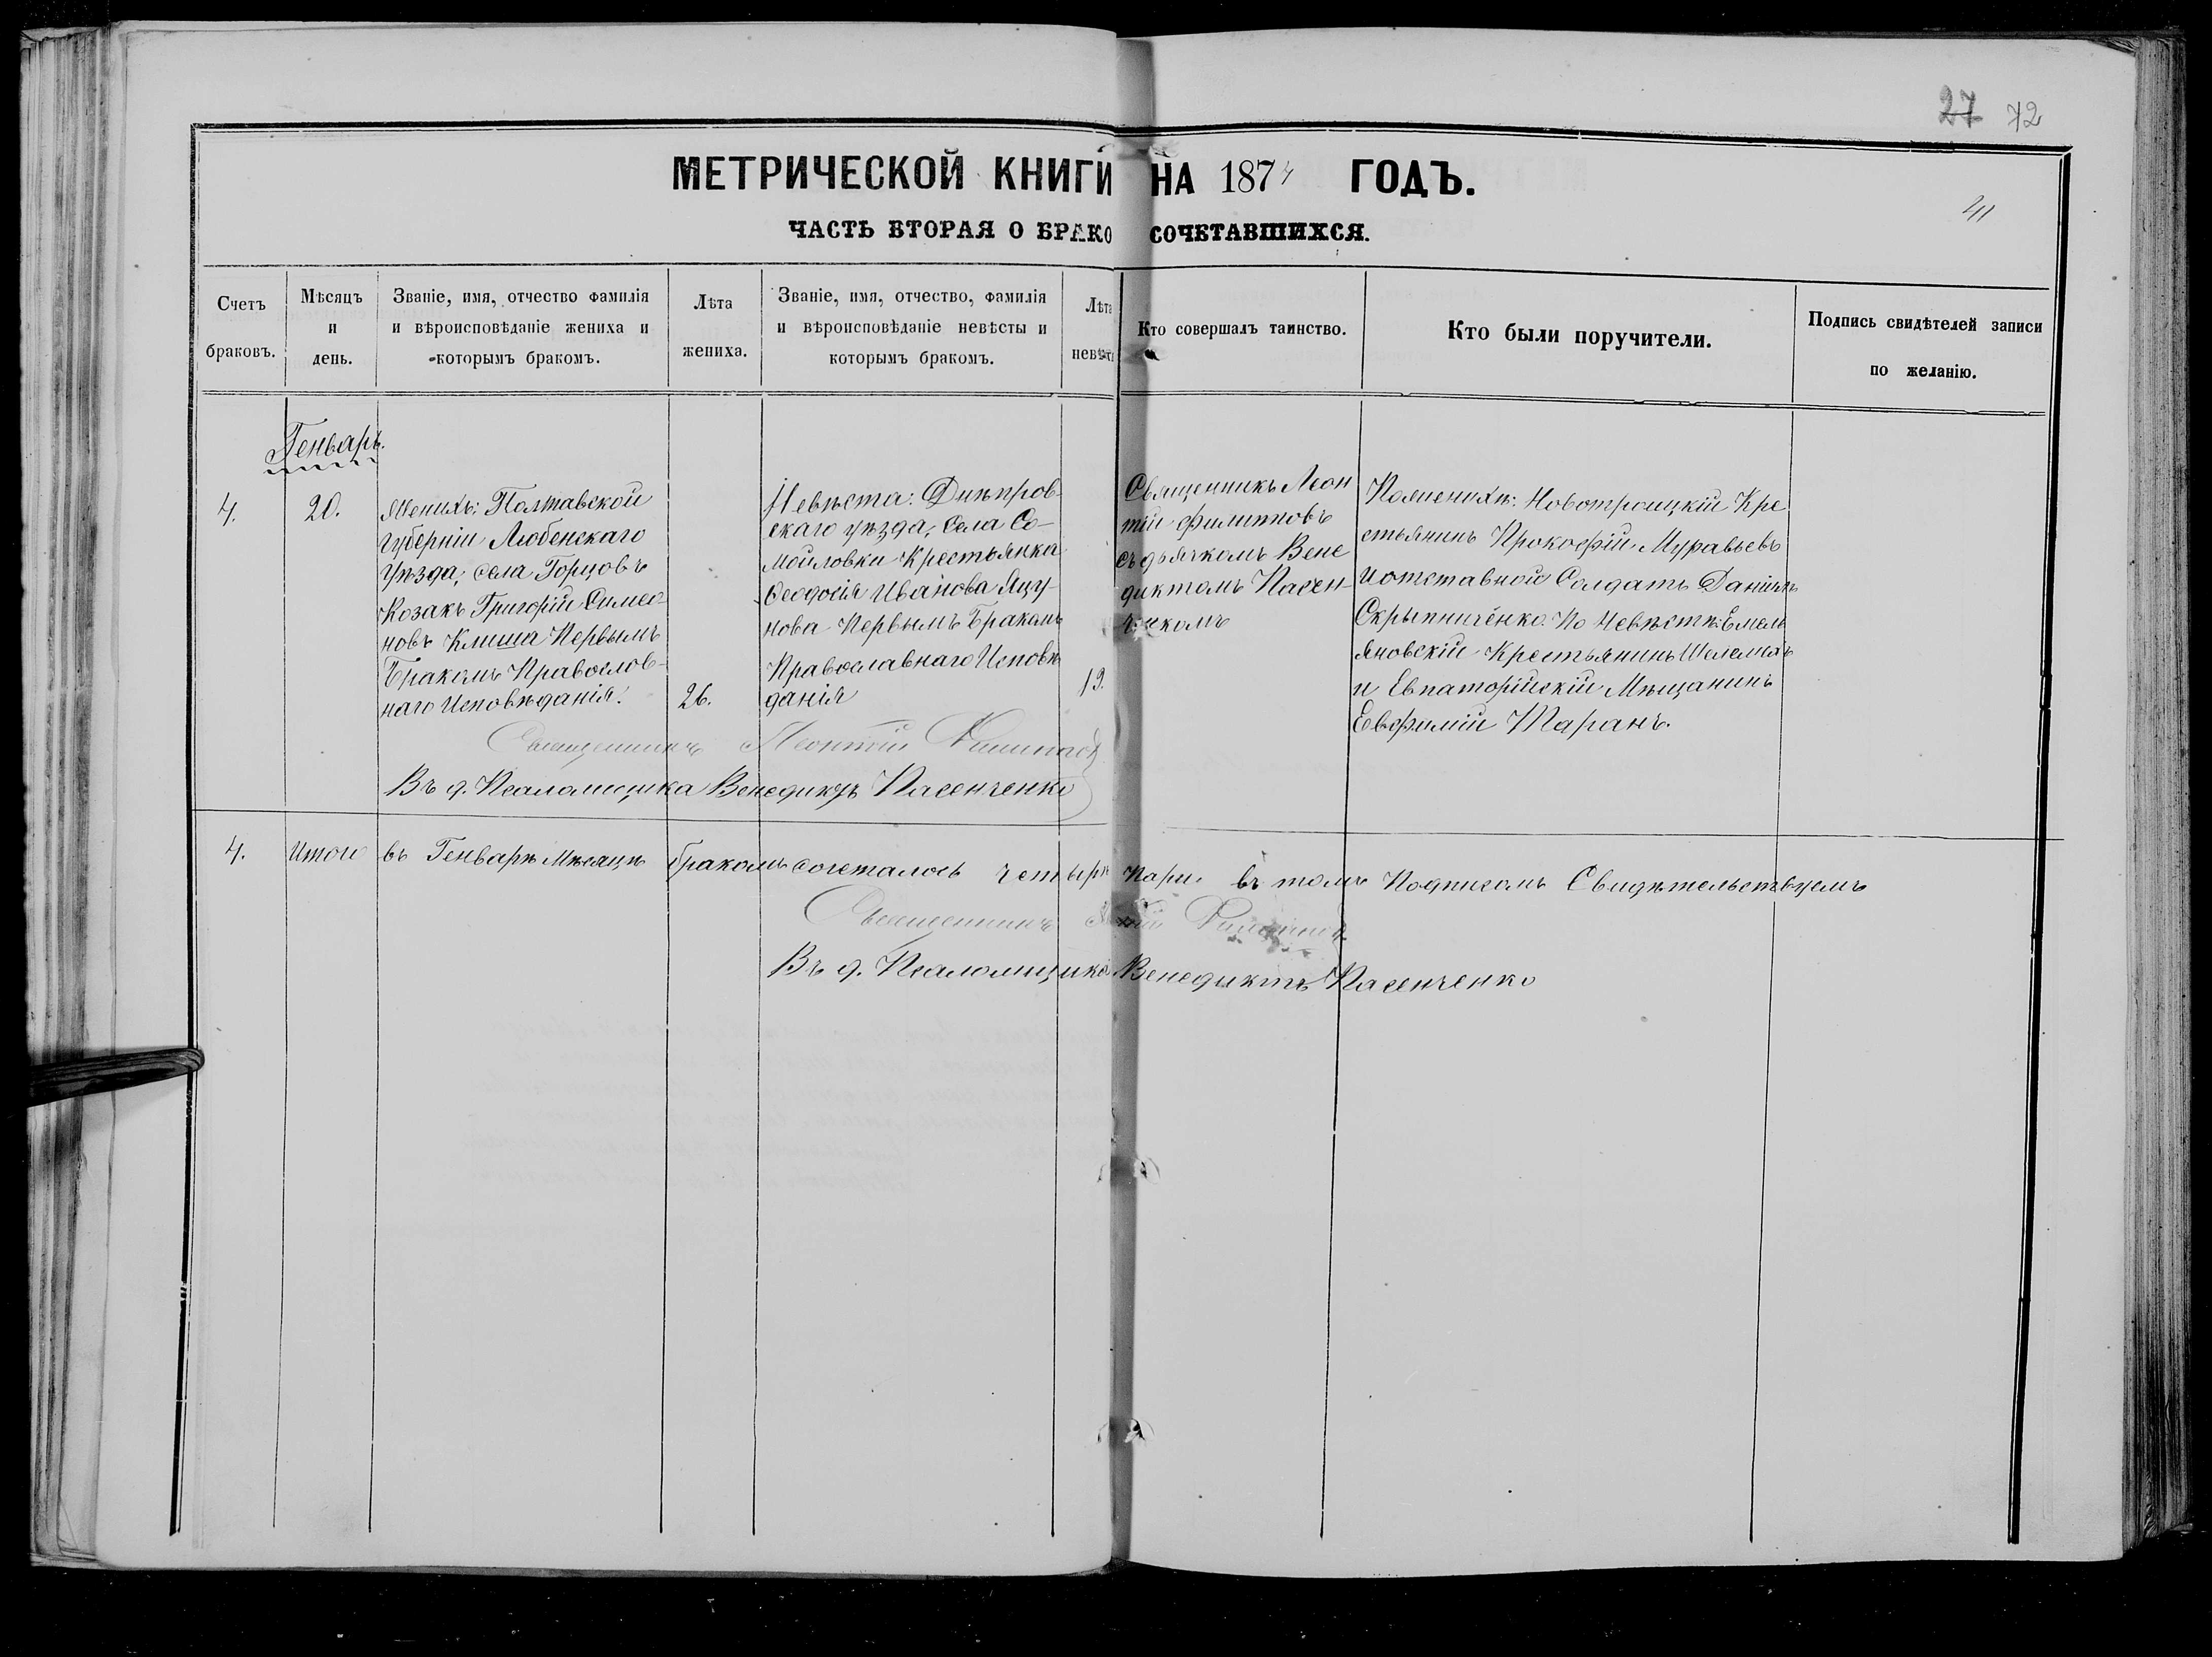 27 72
МЕТРИЧЕСКОЙ КНИГИ НА 1874 ГОДЪ.
41
ЧАСТЬ ВТОРАЯ О БРАКОСОЧЕТАВШИХСЯ.
Счетъ браковъ.
Мѣсяцъ и день.
Званіе, имя, отчество фамилія
и вѣроисповѣданіе жениха и
которымъ бракомъ.
Лѣта жениха.
Званіе, имя, отчество, фамилія
и вѣроисповѣданіе невѣсты и
которымъ бракомъ.
Лѣта невѣсты
Кто совершалъ таинство.
Кто были поручители.
Подпись свидѣтелей записи
по желанію.
Генварь.
4.
20.
Женихъ: Полтавской
губерніи Любенскаго
Уѣзда, села Горцовъ
Козакъ Григорій Симео-
новъ Клиша Первымъ
Бракомъ Православ-
наго Исповѣданія.
26.
Невѣста: Днѣпров-
скаго уѣзда, Села Со-
мойловки Крестьянка
Ѳеодосія Иванова Яцу-
нова Первымъ Бракомъ
Православнаго Исповѣ
данія
19.
Священникъ Леон
тій Филипповъ
съ дьячкомъ Вене
диктомъ Пасен-
ченкомъ
По женихѣ: Новотроицкій Кре
стьянинъ Прокофій Муравьевъ
и отставной Солдатъ Даніилъ
Скрыпниченко. По Невѣстѣ: Емель
яновскій Крестьянинъ
и Евпаторійскій Мѣщанинъ
Евфимій Таранъ.
Священникъ Леонтій Филиповъ
Въ д. Псаломщика Венедиктъ Пасенченко
4. Итого въ Генварѣ Мѣсяцѣ бракомъ сочеталось четыре пары въ томъ Подписомъ Свидѣтельствуемъ
Священникъ Филиповъ
Въ д. Псаломщика Венедиктъ Пасенченко